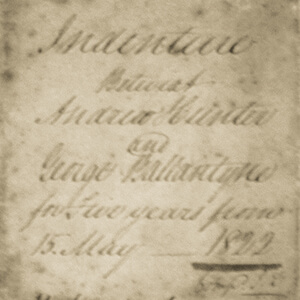 Indenture
Betwext
Andrew Hunter
and
George Ballantyne
for Five years from
15 May 1822